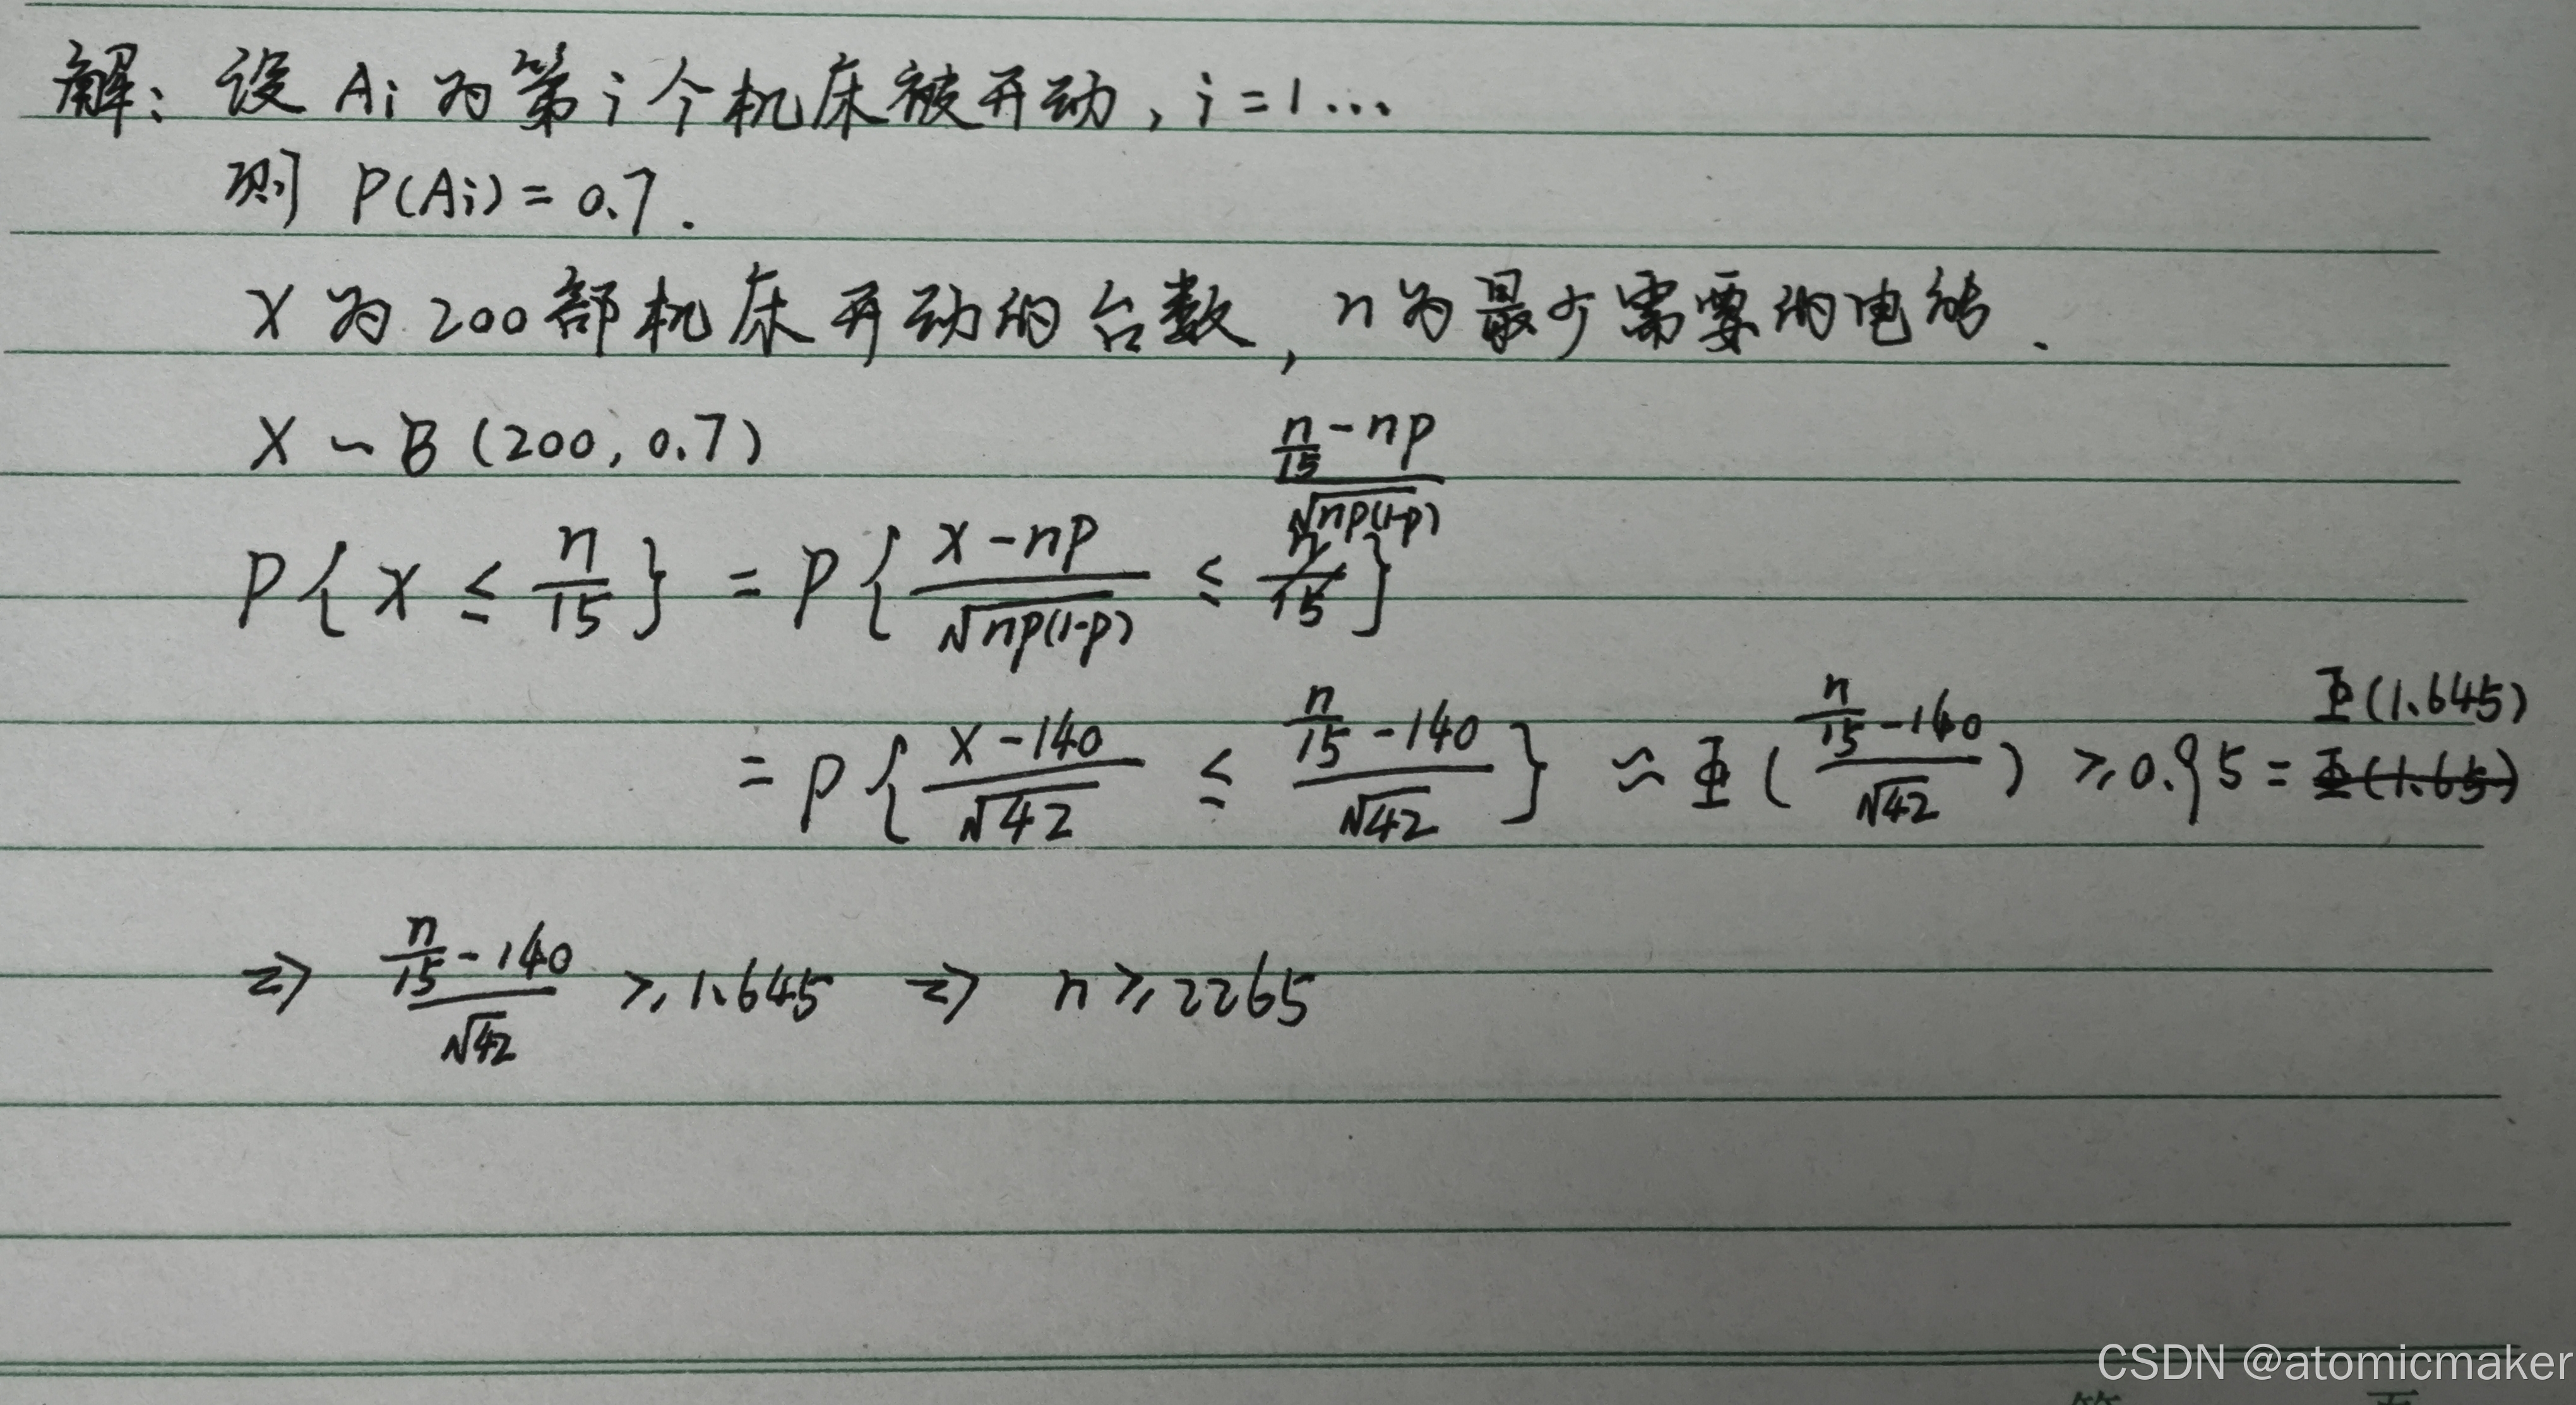 解：设 Ai 为第 i 个机床被开动，i = 1 ...
则 P(Ai) = 0.7.
X 为 200 部机床开动的台数，n 为最少需要的电能.
X ~ B (200, 0.7)
P{X ≤ n/15} = P{(X - np)/√(np(1-p)) ≤ (n/15 - np)/√(np(1-p))}
= P{(X - 140)/√42 ≤ (n/15 - 140)/√42} ≈ Φ((n/15 - 140)/√42) ≥ 0.95 = Φ(1.645)
⇒ (n/15 - 140)/√42 ≥ 1.645 ⇒ n ≥ 2265
CSDN @atomicmaker